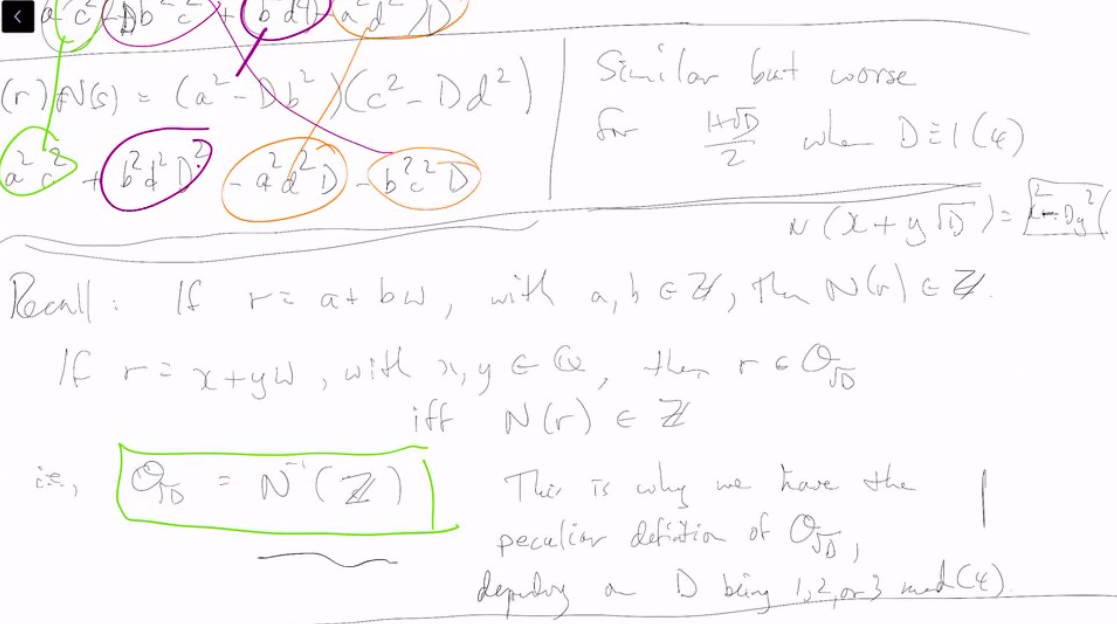 a c² (-Db²c² + b²d² - a²d²)D
(r)N(s) = (a² - Db²)(c² - Dd²)
a²c² + b²d²D² - a²d²D - b²c²D
Similar but worse
for (1+√D)/2 when D ≡ 1(4)
N(x + y√D) = x² - Dy²
Recall: If r = a + bω, with a, b ∈ ℤ, then N(r) ∈ ℤ.
If r = x + yω, with x, y ∈ ℚ, then r ∈ O_√D
iff N(r) ∈ ℤ
i.e., O_√D = N⁻¹(ℤ)
This is why we have the
peculiar defintion of O_√D,
depending on D being 1, 2, or 3 mod (4).